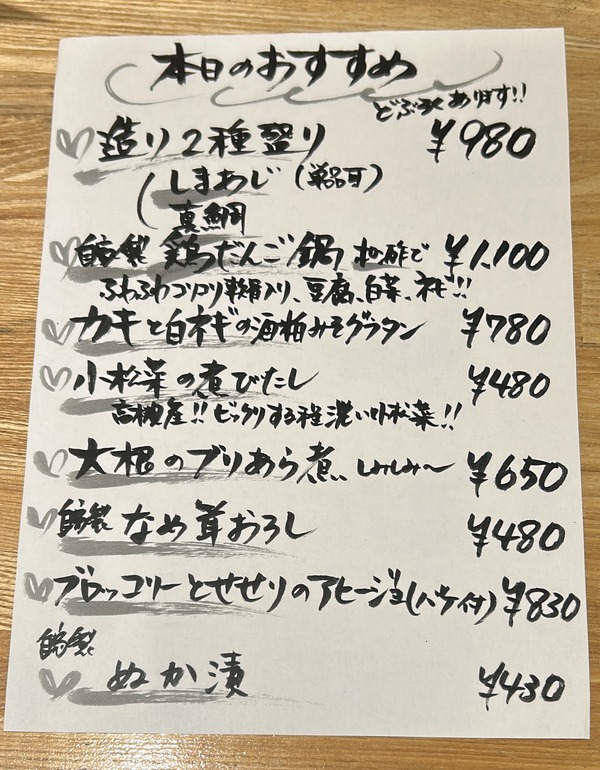 本日のおすすめ
どぶろくあります!!
造り2種盛り ¥980
しまあじ(単品可)
真鯛
自家製 鶏だんご鍋 ポン酢で ¥1,100
ふわふわコリコリ軟骨入り、豆腐、白菜、ネギ!!
カキと白ネギの酒粕みそグラタン ¥780
小松菜の煮びたし ¥480
高槻産!!ビックリする程濃い小松菜!!
大根のブリあら煮 しみしみ〜 ¥650
自家製 なめ茸おろし ¥480
ブロッコリーとせせりのアヒージョ(バケ付) ¥830
自家製
ぬか漬 ¥430